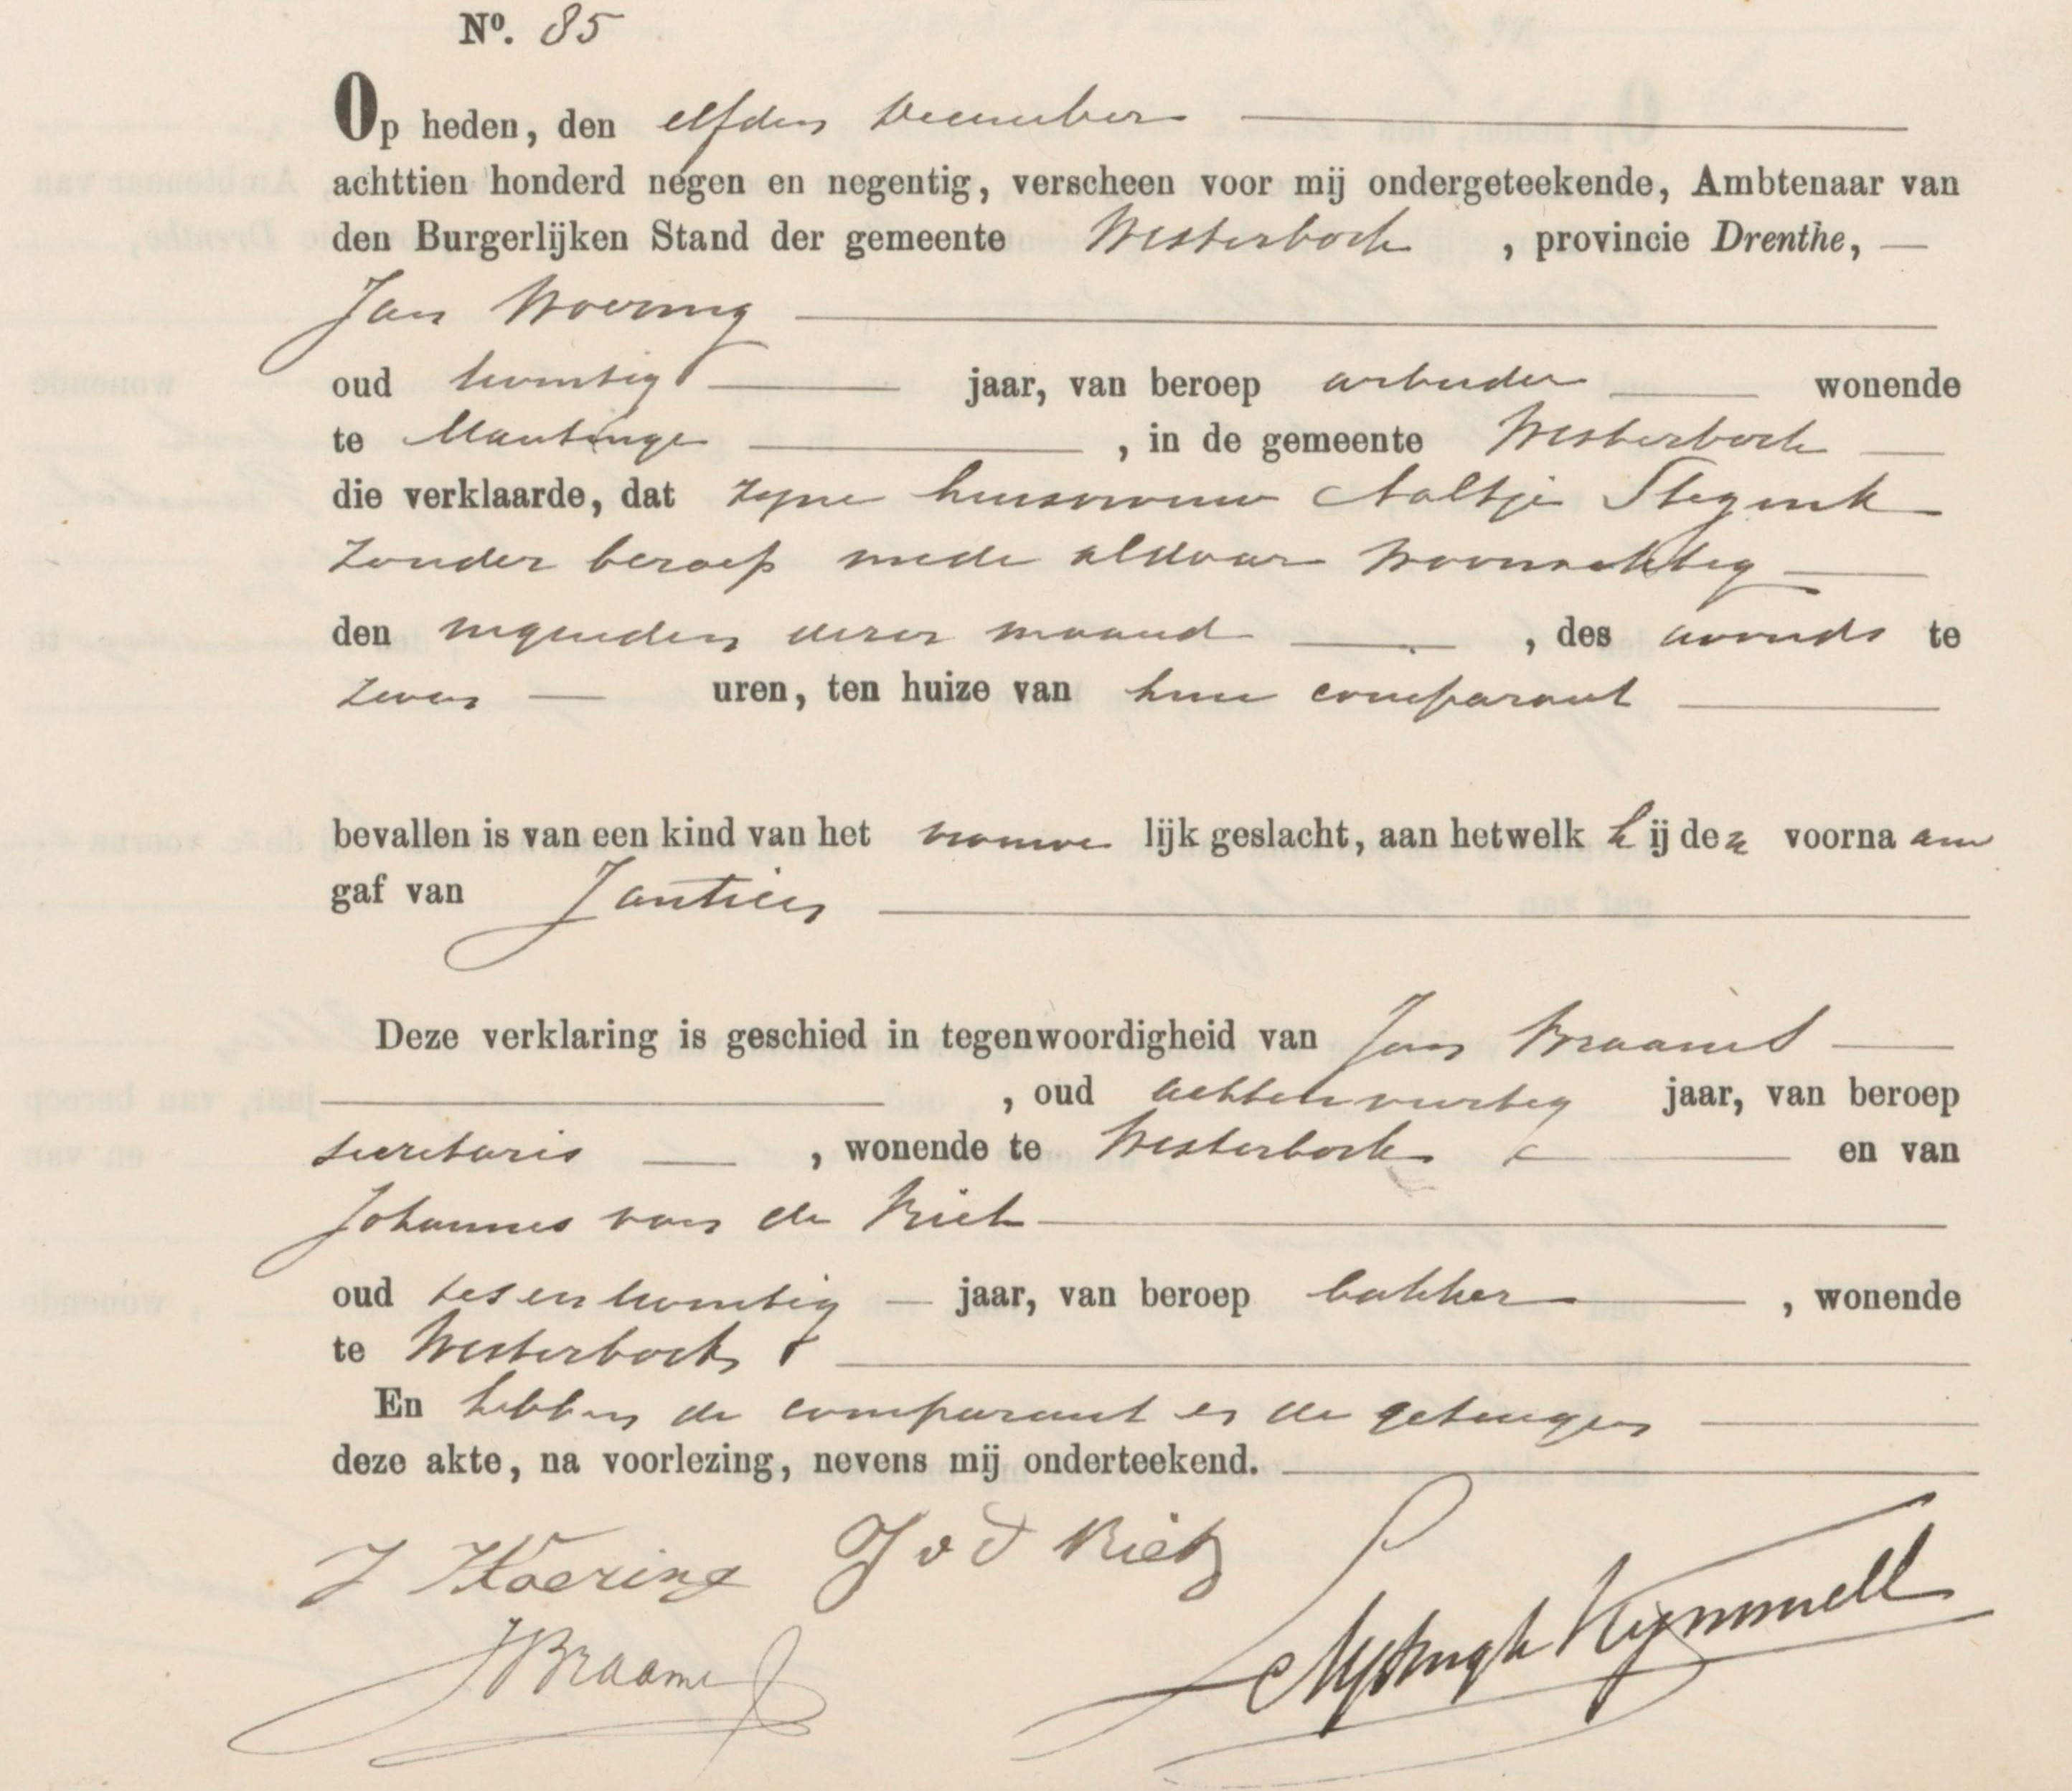 No. 85
Op heden, den elfden December
achttien honderd negen en negentig, verscheen voor mij ondergeteekende, Ambtenaar van
den Burgerlijken Stand der gemeente Westerbork, provincie Drenthe,
Jan Woering
oud twintig jaar, van beroep arbeider wonende
te Mantinge, in de gemeente Westerbork
die verklaarde, dat zijne huisvrouw Aaltje Stegink
zonder beroep mede aldaar woonachtig
den negenden dezer maand, des avonds te
zeven uren, ten huize van hem comparant
bevallen is van een kind van het vrouwelijk geslacht, aan hetwelk hij den voornaam
gaf van Jantien
Deze verklaring is geschied in tegenwoordigheid van Jan Braams
, oud achtenveertig jaar, van beroep
secretaris, wonende te Westerbork en van
Johannes van de Riet
oud zesentwintig jaar, van beroep bakker, wonende
te Westerbork
En hebben de comparant en de getuigen
deze akte, na voorlezing, nevens mij onderteekend.
J Woering J v d Riet
JBraams Kymmell